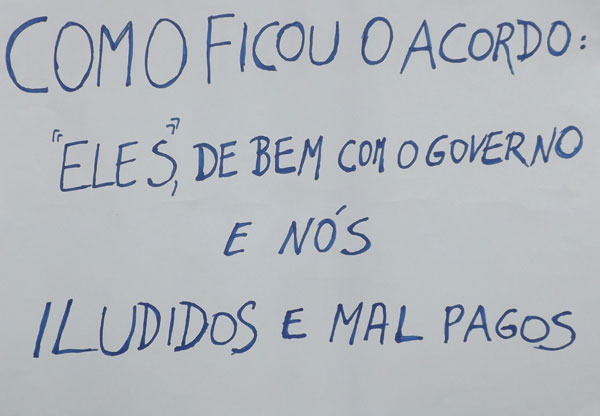 COMO FICOU O ACORDO:
"ELES", DE BEM COM O GOVERNO
E NÓS
ILUDIDOS E MAL PAGOS